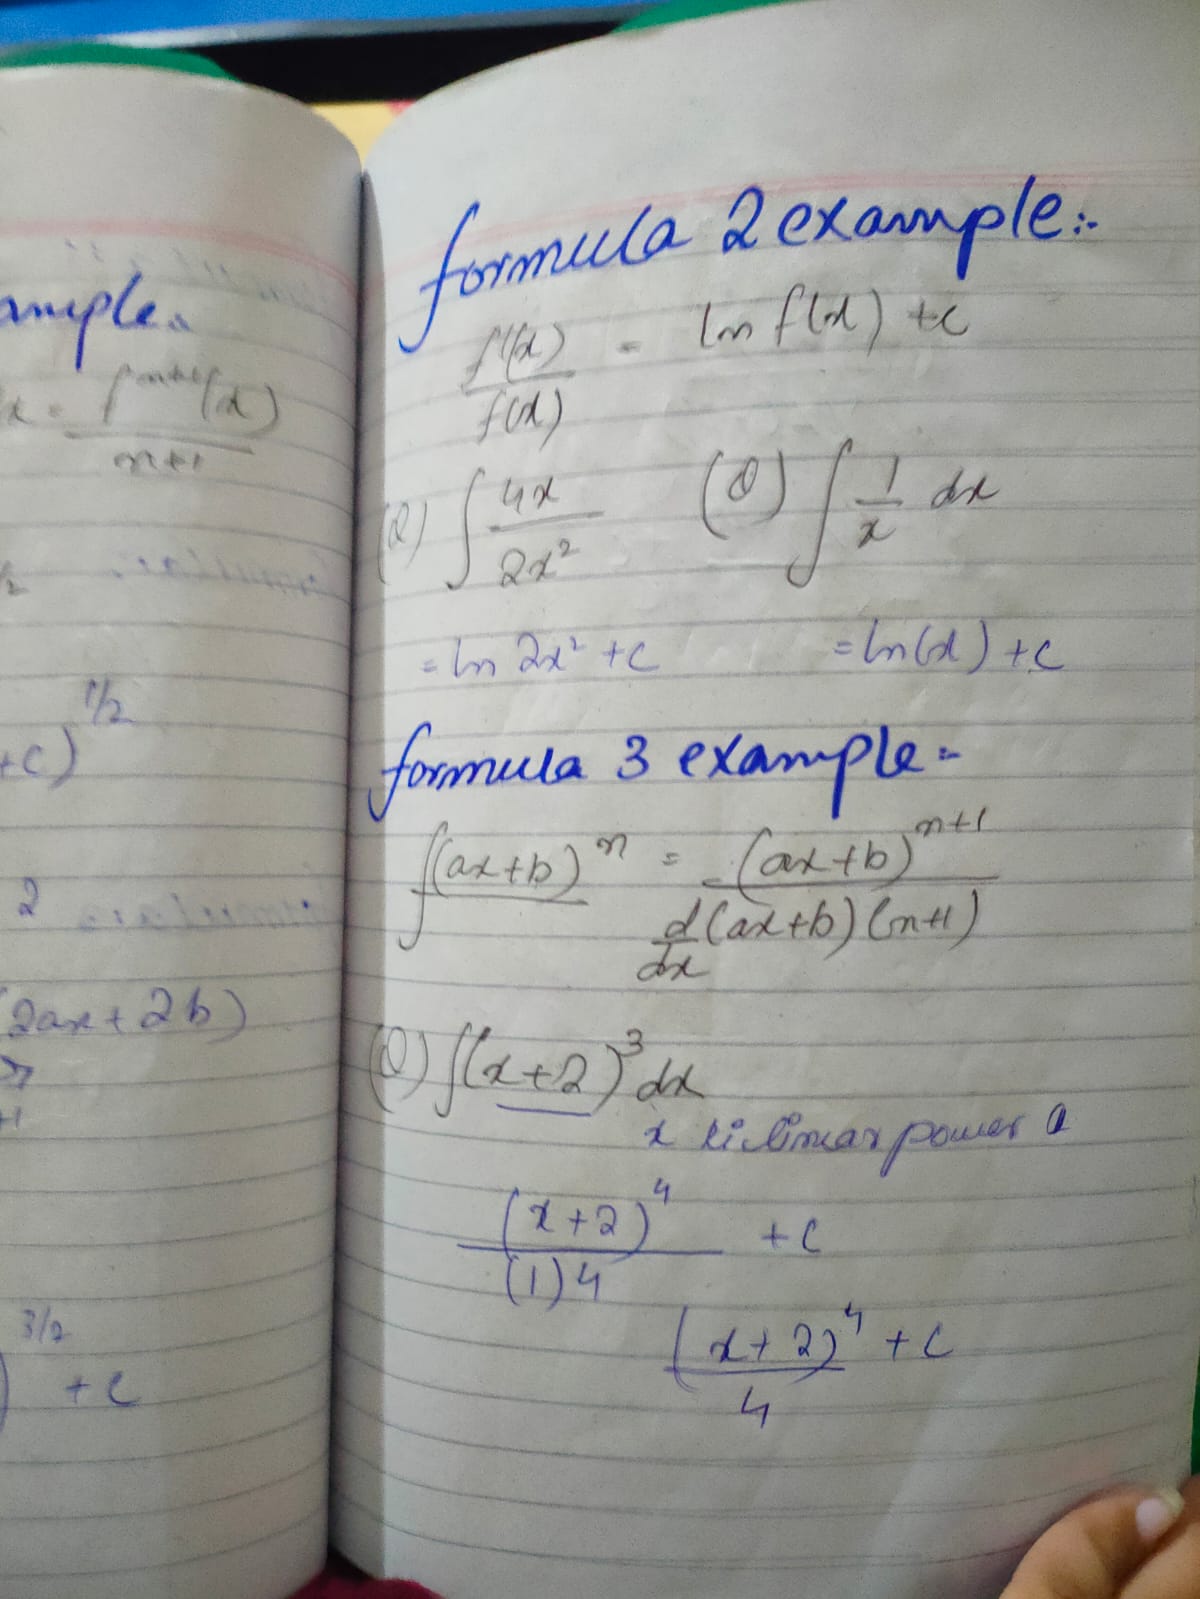 ample:
x = fⁿ⁺¹(x)
n+1
1/2
+c)
2
(2ax + 2b)
+1
3/2
+c
formula 2 example:-
f'(x) = ln f(x) + c
f(x)
(Q) ∫ 4x (Q) ∫ 1 dx
2x² x
= ln 2x² + c = ln(x) + c
formula 3 example:-
∫(ax+b)ⁿ = (ax+b)ⁿ⁺¹
d (ax+b)(n+1)
dx
(Q) ∫(x+2)³ dx
x ki linear power
(x+2)⁴ + c
(1)4
(x+2)⁴ + c
4